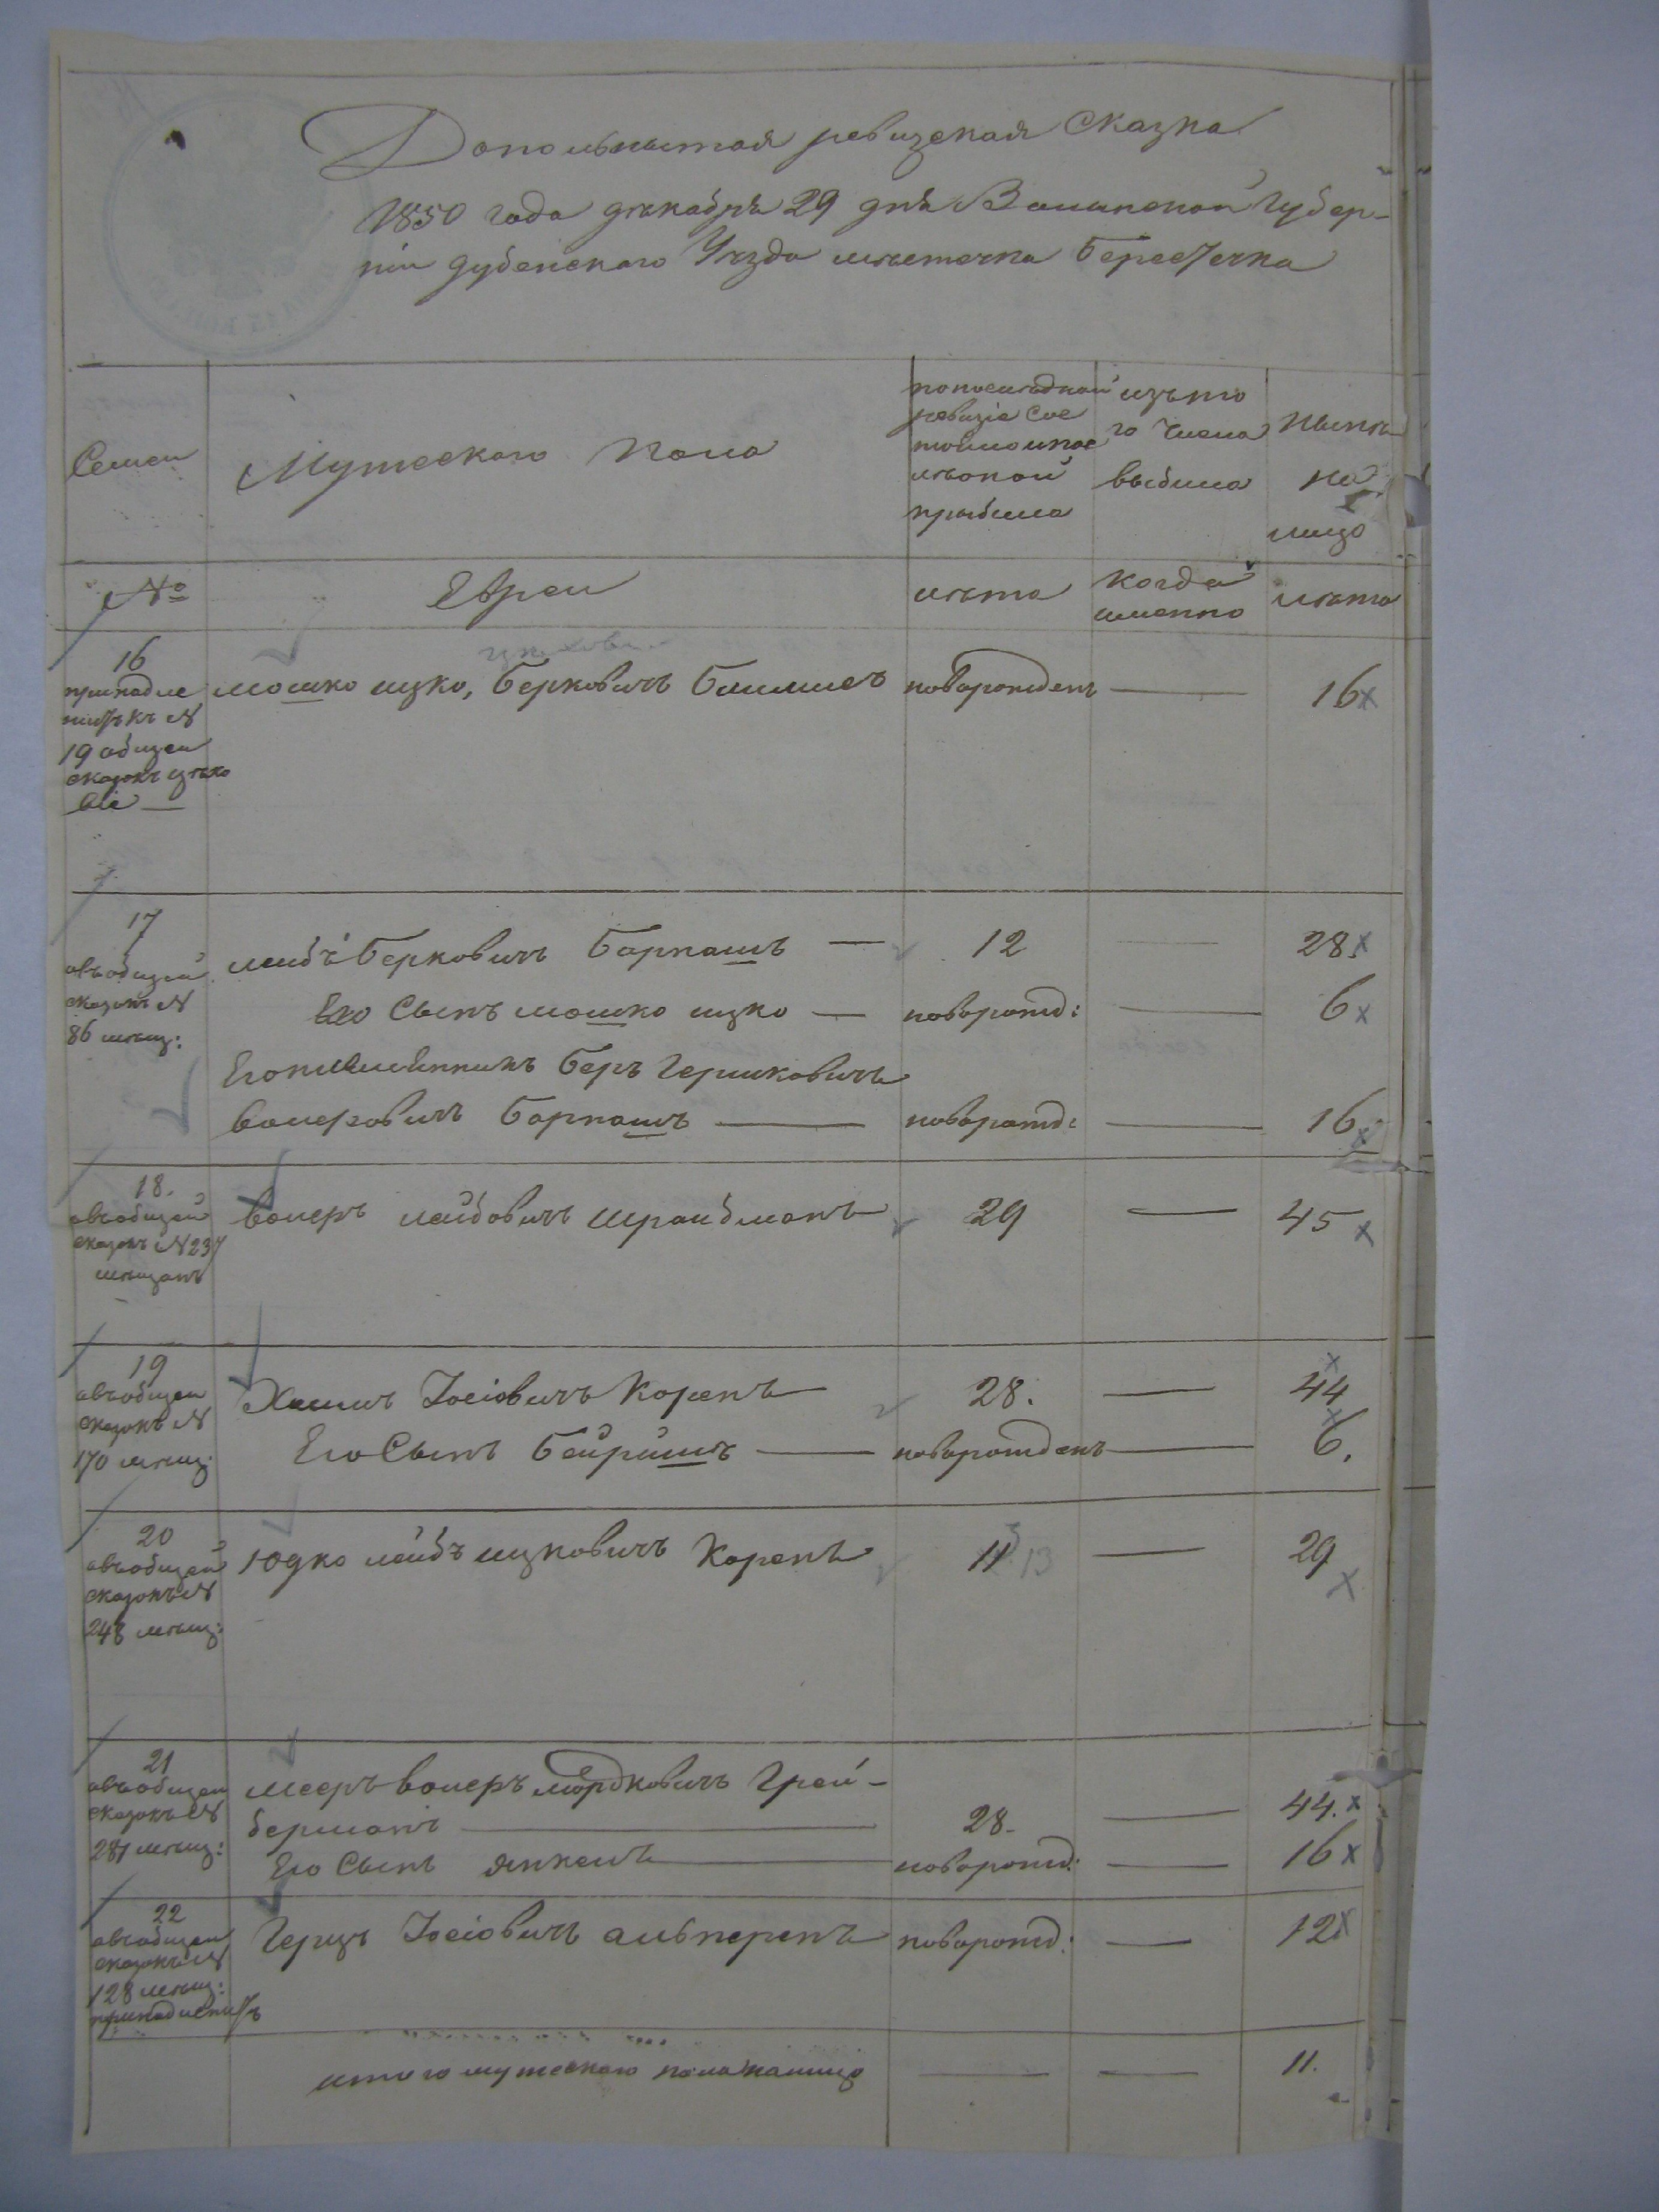 Допольнытная ревизская Сказка
1850 года декабря 29 дня Волынской Губер-
ніи дубенского Уезда местечка Берестечка
Семеи
Мужеского Пола
попоследной
ревизіе Сос
тояло ипос
ле оной
прыбыло
изъ то
го Числа
выбыло
Ныне
на
лицо
№
Евреи
лета
когда
именно
лета
16
принадле
житъ къ №
19 общеи
сказокъ
мошко ицко, Берковичъ
новорожденъ
—
16
17
въобщей
сказокъ №
86 мещ:
леибъ Берковичъ Барнашъ —
12
—
28
Его Сынъ мошко ицко —
новорожд:
—
6
Его племянникъ Беръ Гершковичъ
Волфовичъ Барнашъ —
новорожд:
—
16
18.
въобщей
сказокъ № 237
мещанъ
Волеръ лейбовичъ Шраибманъ
29
—
45
19
въобщеи
сказокъ №
170 мещ:
Хаимъ Іосіовичъ Коренъ
28.
—
44
Его Сынъ Бейришъ —
новорожденъ
—
6.
20
въобщей
сказокъ №
248 мещ:
Юдко лейбъ ицковичъ Коренъ
11 13
—
29
21
въобщеи
сказокъ №
281 мещ:
мееръ волеръ мордковичъ Грей-
берманъ —
28.
—
44.
Его Сынъ янкель —
новорожд:
—
16
22
въобщеи
сказокъ №
128 мещ:
принадлежитъ
Герцъ Іосіовичъ альперенъ
новорожд:
—
12
итого мужеского пола налицо
—
—
11.